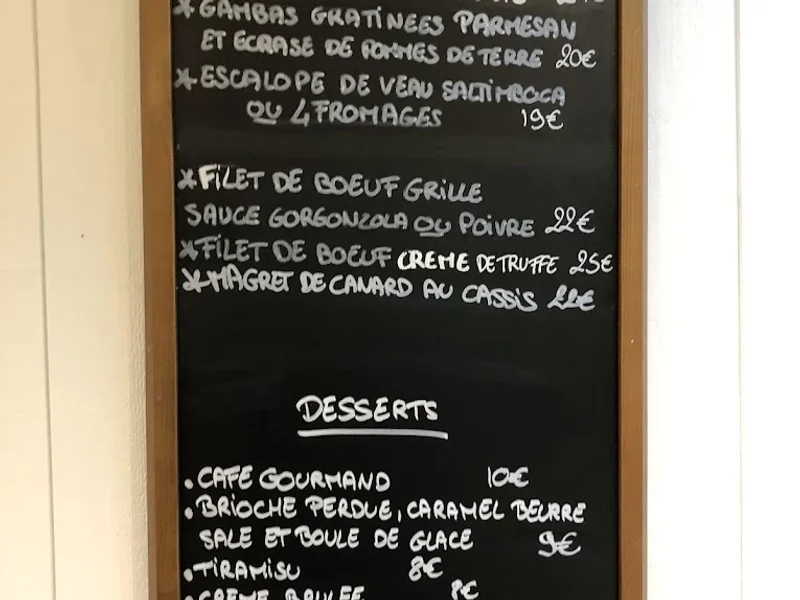 *GAMBAS GRATINEES PARMESAN
ET ECRASE DE POMMES DE TERRE 20€
*ESCALOPE DE VEAU SALTIMBOCA
OU 4 FROMAGES 19€
*FILET DE BOEUF GRILLE
SAUCE GORGONZOLA OU POIVRE 22€
*FILET DE BOEUF CREME DE TRUFFE 25€
*MAGRET DE CANARD AU CASSIS 22€
DESSERTS
.CAFE GOURMAND 10€
.BRIOCHE PERDUE, CARAMEL BEURRE
SALE ET BOULE DE GLACE 9€
.TIRAMISU 8€
.CREME BRULEE 8€